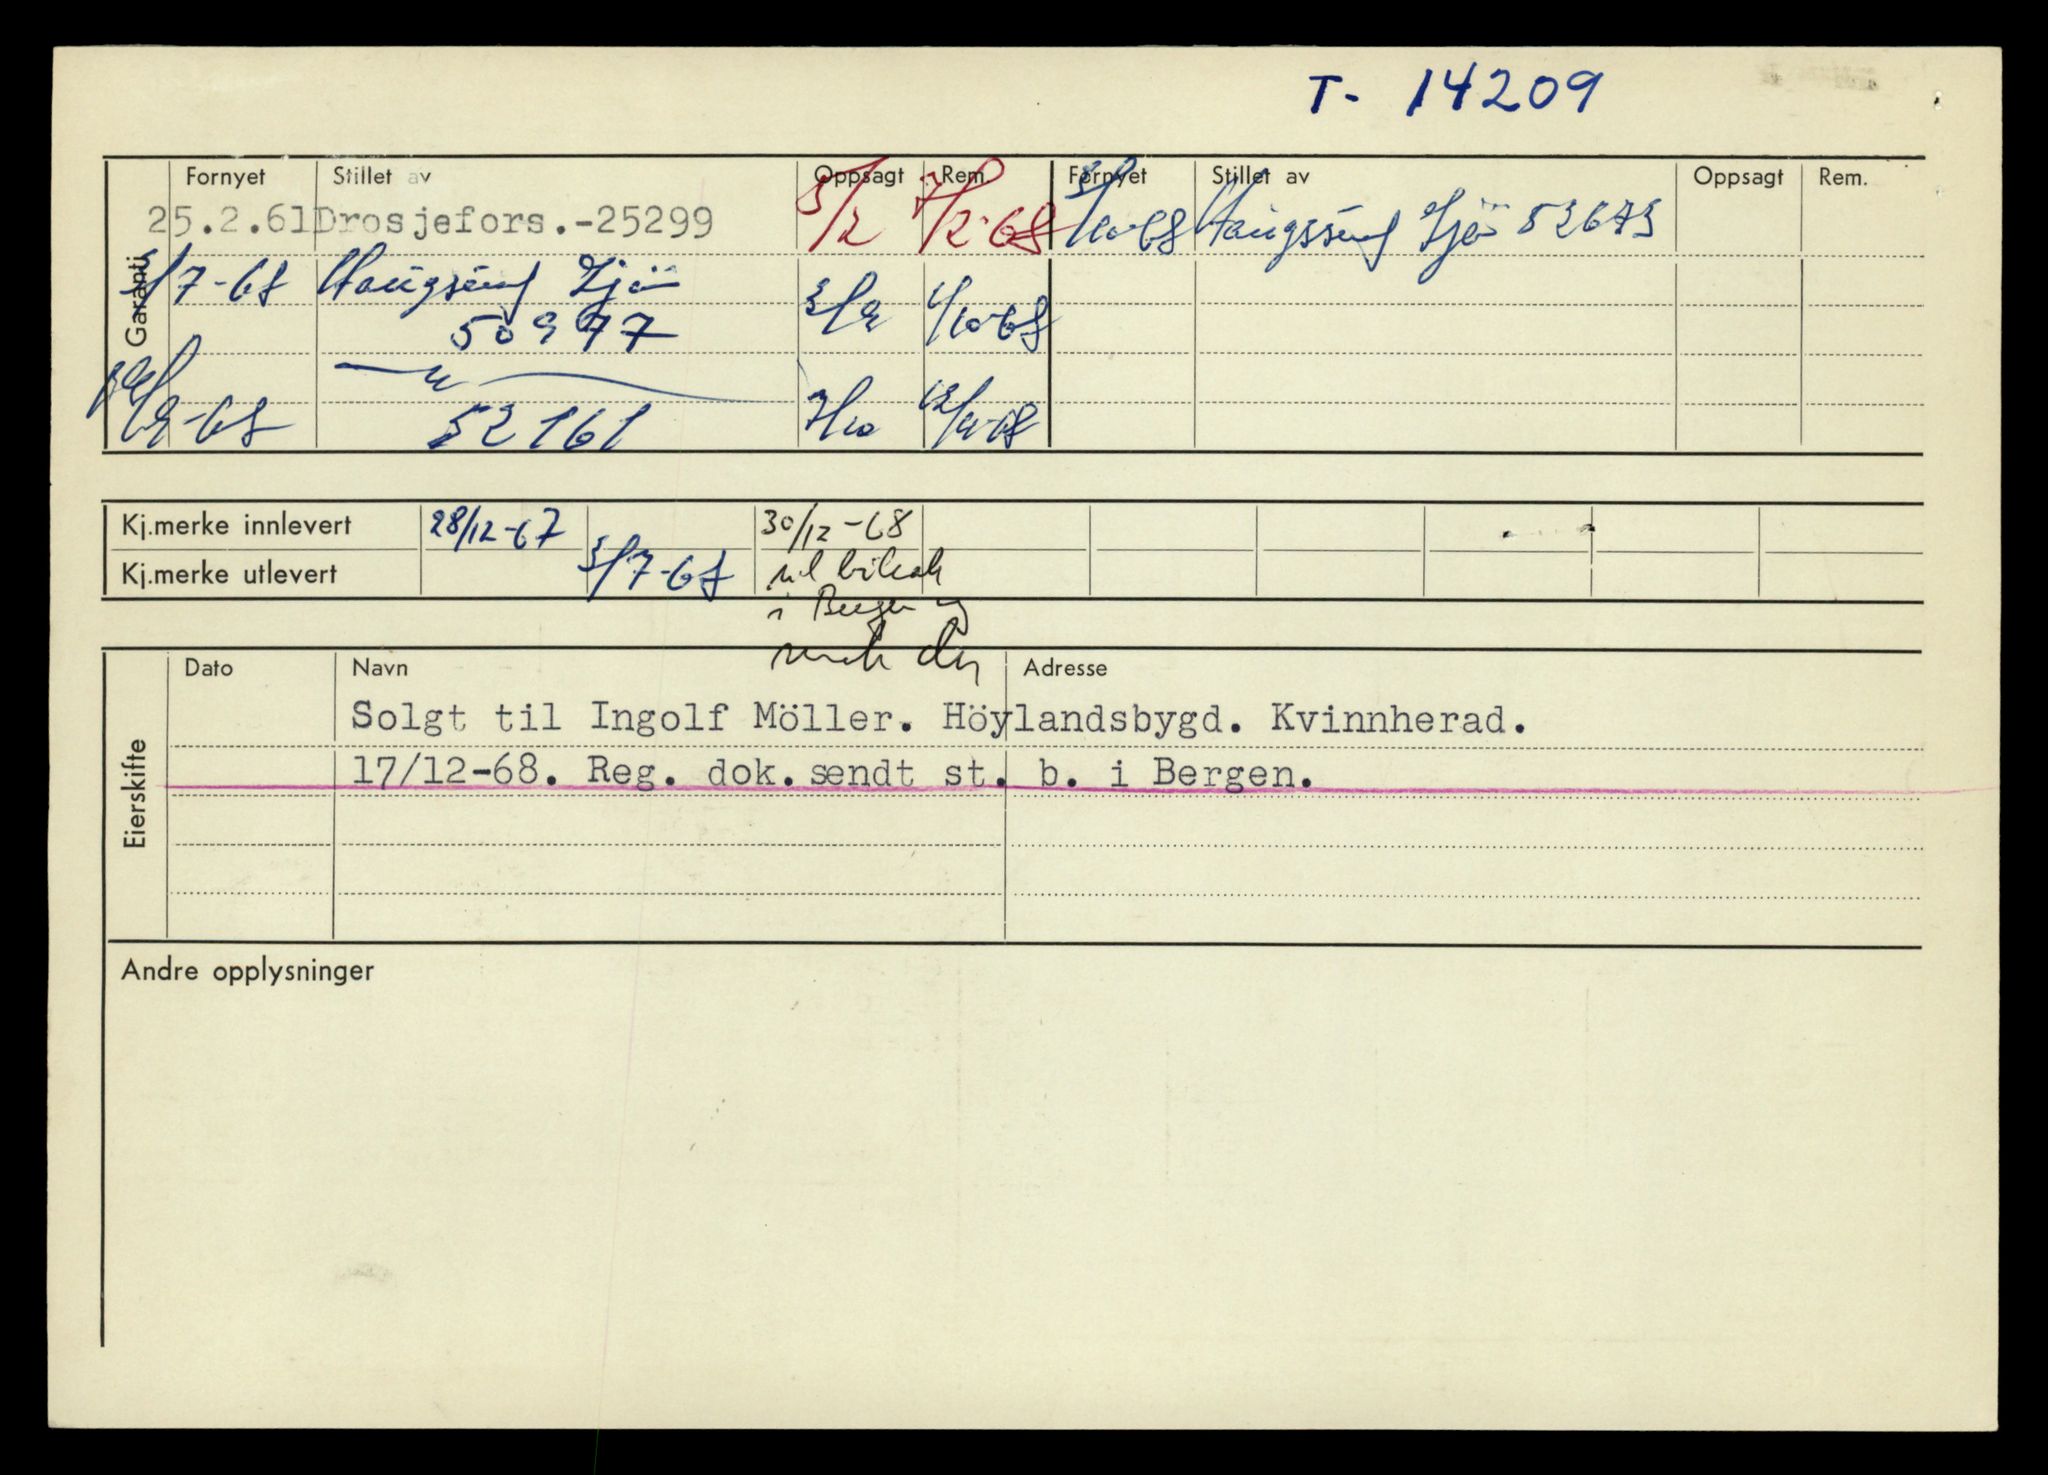 T- 14209
Garanti
Fornyet Stillet av Oppsagt Rem. Fornyet Stillet av Oppsagt Rem.
25.2.61 Drosjefors.-25299 5/2 7/2-68 3/10-68 Haugesund Sjø 52673
3/7-68 Haugesund Sjø 3/9 1/10-68
50977
-68 52161 7/10
Kj.merke innlevert 28/12-67 30/12-68
Kj.merke utlevert 3/7-68 til bilsak
i Bergen og
Eierskifte
Dato Navn Adresse
Solgt til Ingolf Möller. Höylandsbygd. Kvinnherad.
17/12-68. Reg. dok. sendt st. b. i Bergen.
Andre opplysninger